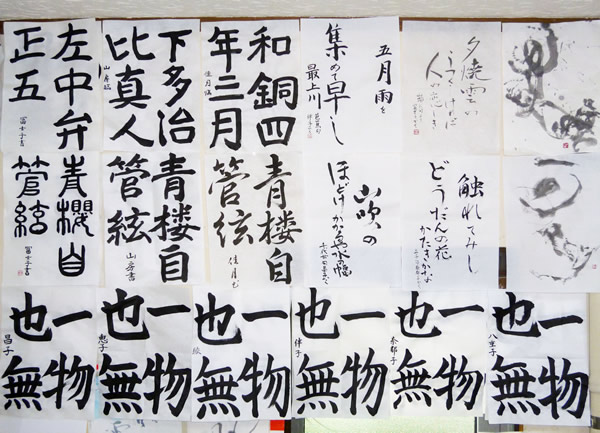 夕焼雲の
うつくしければ
人の恋しき
五月雨を
集めて早し
最上川
和銅四
年三月
佳月臨
下多治
比真人
山房臨
左中弁
正五
冨士子書
触れてみし
どうだんの花
かたきかな
山吹の
ほどけかかる水の幅
青楼自
管絃
佳月
青楼自
管絃
山房書
青樓自
管絃
冨士子書
一物
也無
八重子
一物
也無
奈都子
一物
也無
律子
一物
也無
一物
也無
恵子
一物
也無
昌子